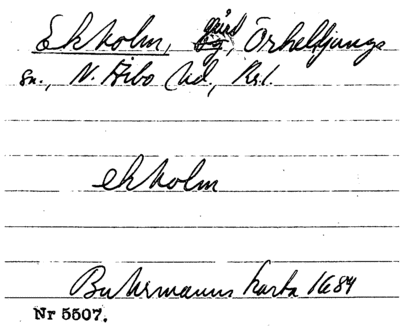 Ekholm, gård, Örkelljunga
sn., N. Åsbo hd, Krl.
ekholm
Buhrmanns karta 1684
Nr 5507.